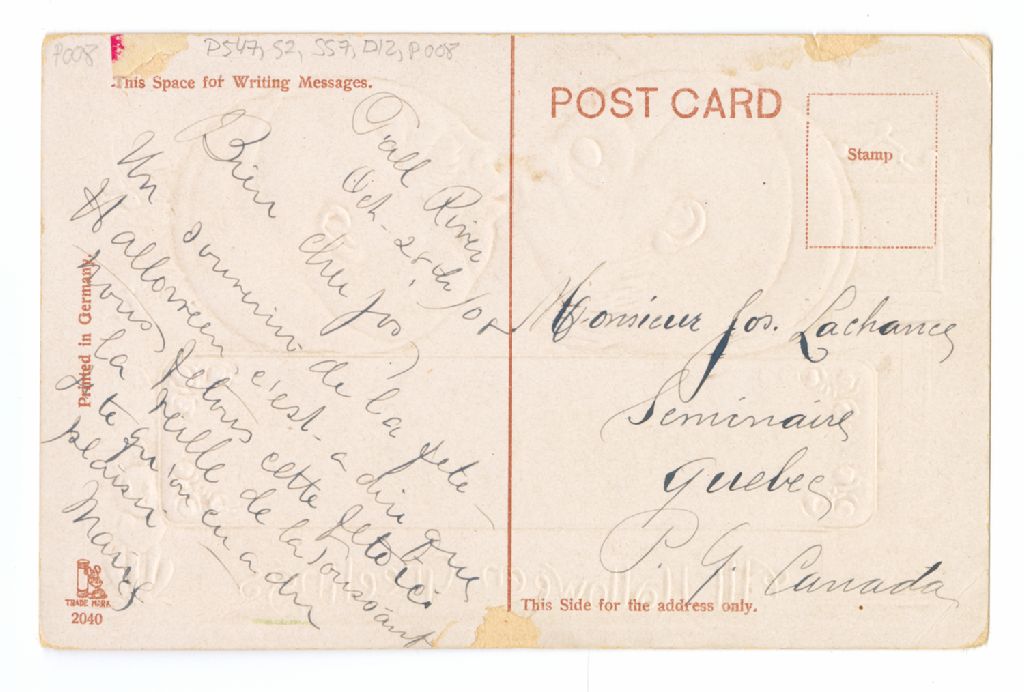 P008
D547, S2, SS7, D12, P008
This Space for Writing Messages.
Fall River
Oct - 28th/02
Bien cher Jos,
Un souvenir de la fete
Halloween c'est-a dire que
nous fetons cette fete ici
La veille de la Toussaint
Je te qu'on en a du
plaisir
Printed in Germany
TRADE MARK
2040
POST CARD
Stamp
Monsieur Jos. Lachance
Seminaire
Quebec
P. Q. Canada
This Side for the address only.